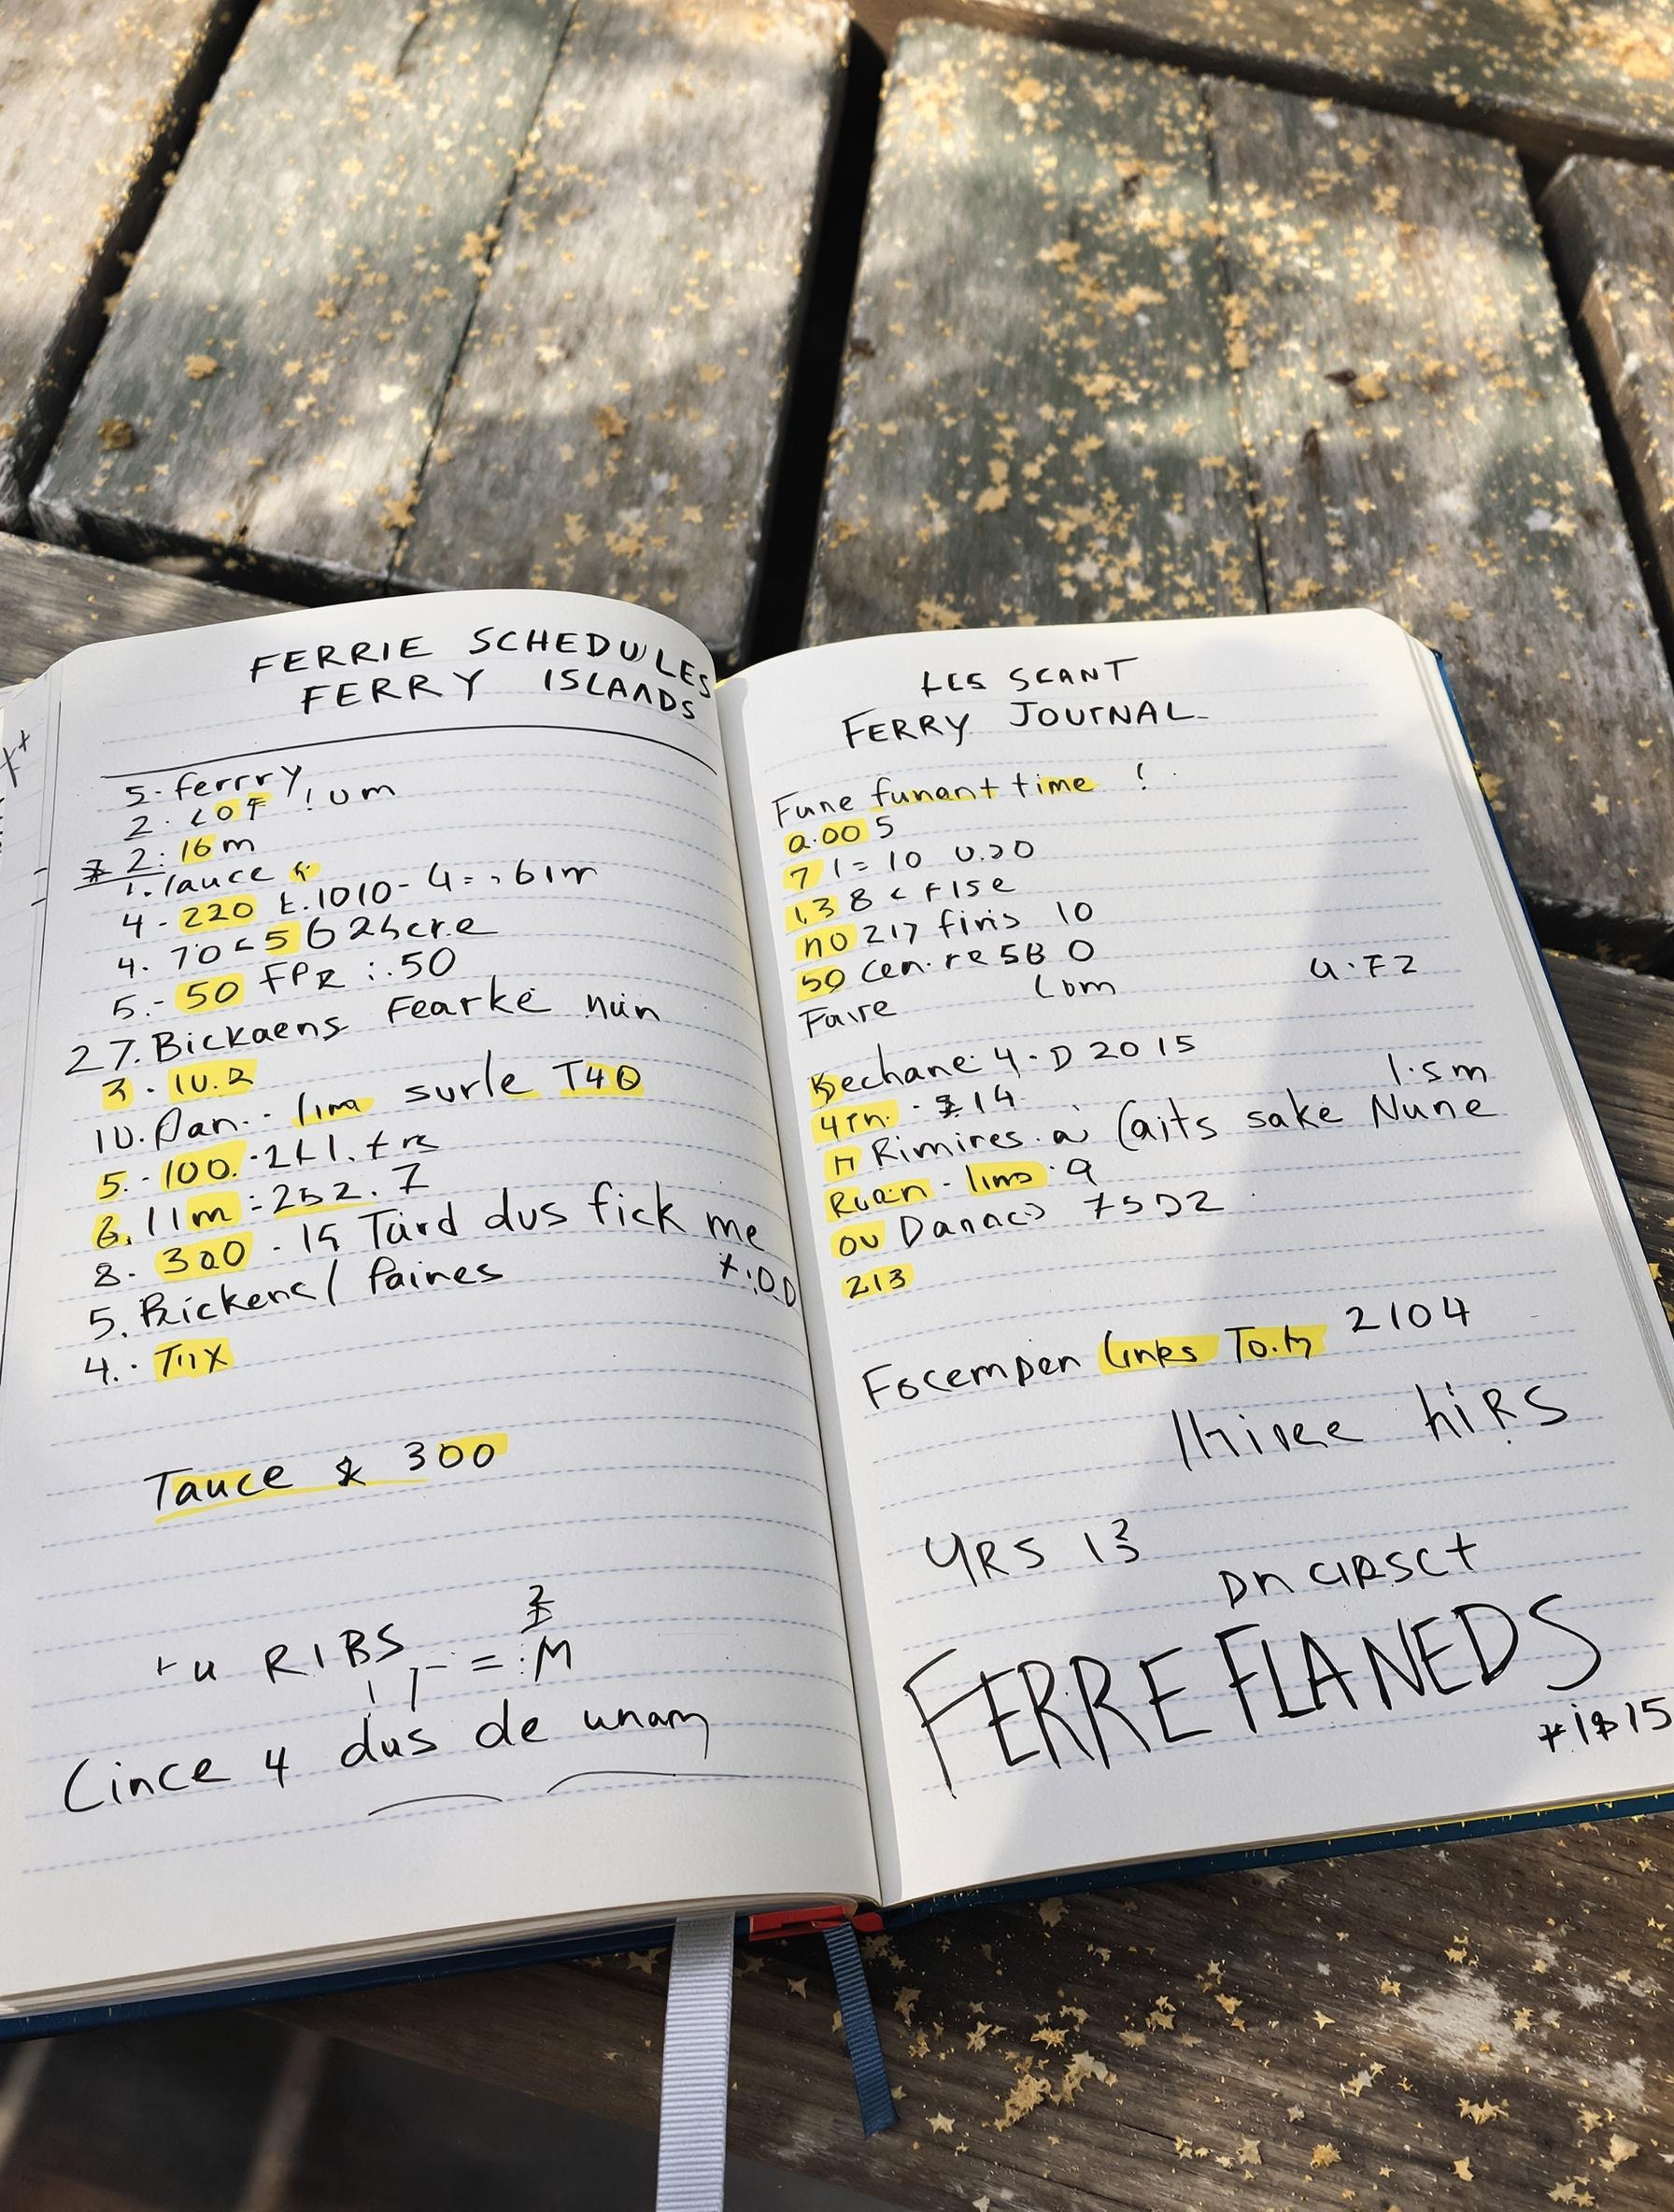 FERRIE SCHEDULES
FERRY ISLANDS
5. ferrry
2. LOF ! um
2: 16 m
1. lauce
4 - 220 t. 1010 - 4 =
4. 70 < 5 6 2hcre
5. - 50 FPR :. 50
27. Bickaens Fearke nuin
3 - 10.2
10. Dan. - lima surle T40
5. - 100. - 2LI. trs
8. 11m = 252. 7
8. 300 - 15 Tard dus fick me
5. Bickens/ Paines
4. - TIIX
Tauce & 300
RIBS
= : M
Cince 4 dus de unam
LES SCANT
FERRY JOURNAL
Fune funant time !
0.00 5
7 1 = 10 0.20
1,3 8 < FISe
no 217 finis 10
50 cen. re 5B 0
Faire Lom 4.F2
Bechane 4. D 2015
4Th. - $14 1.5m
H Rimires. a (aits sake Nune
Ruan - limo. 9
ou Danaco 75D2
213
Focempen links To.h 2104
hiRS
YRS 13
Dn CIRSCT
FERRE FLANEDS